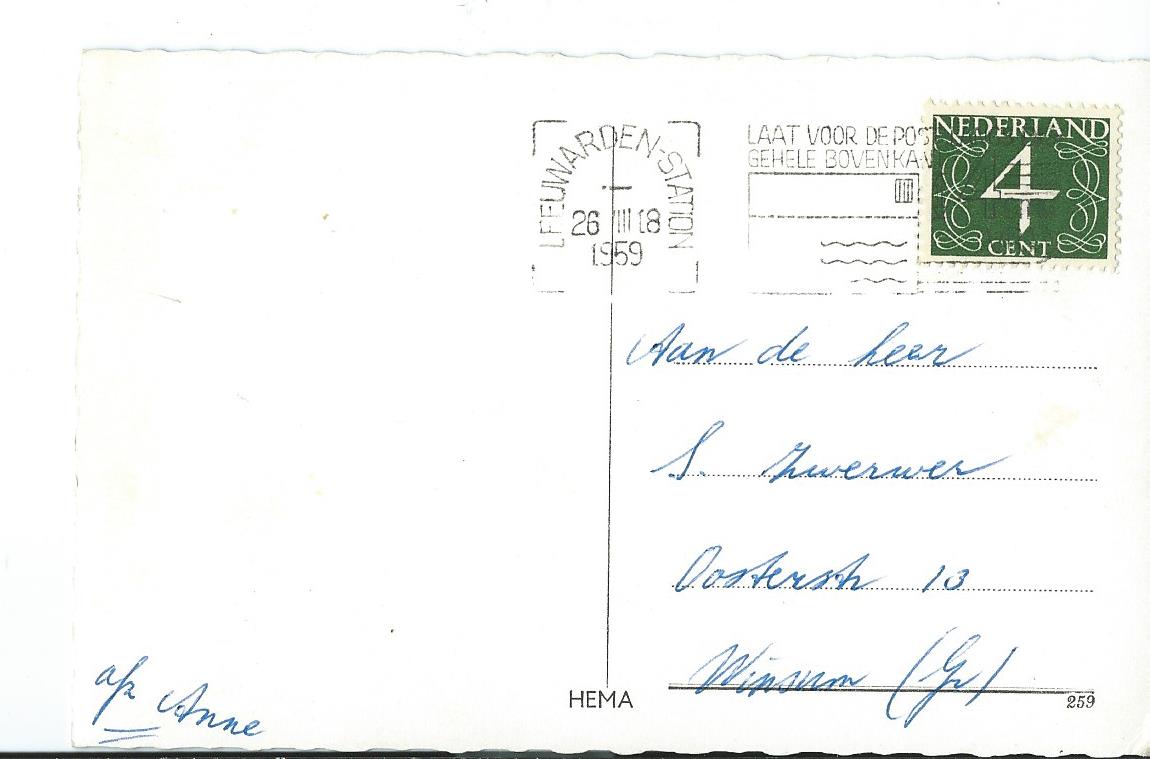 LEEUWARDEN-STATION
26 III 18
1959
LAAT VOOR DE POST
GEHELE BOVENKAN
NEDERLAND
4
CENT
Aan de heer
S. Zwerwer
Oosterstr 13
Winsum (Gr)
afz Anne
HEMA
259